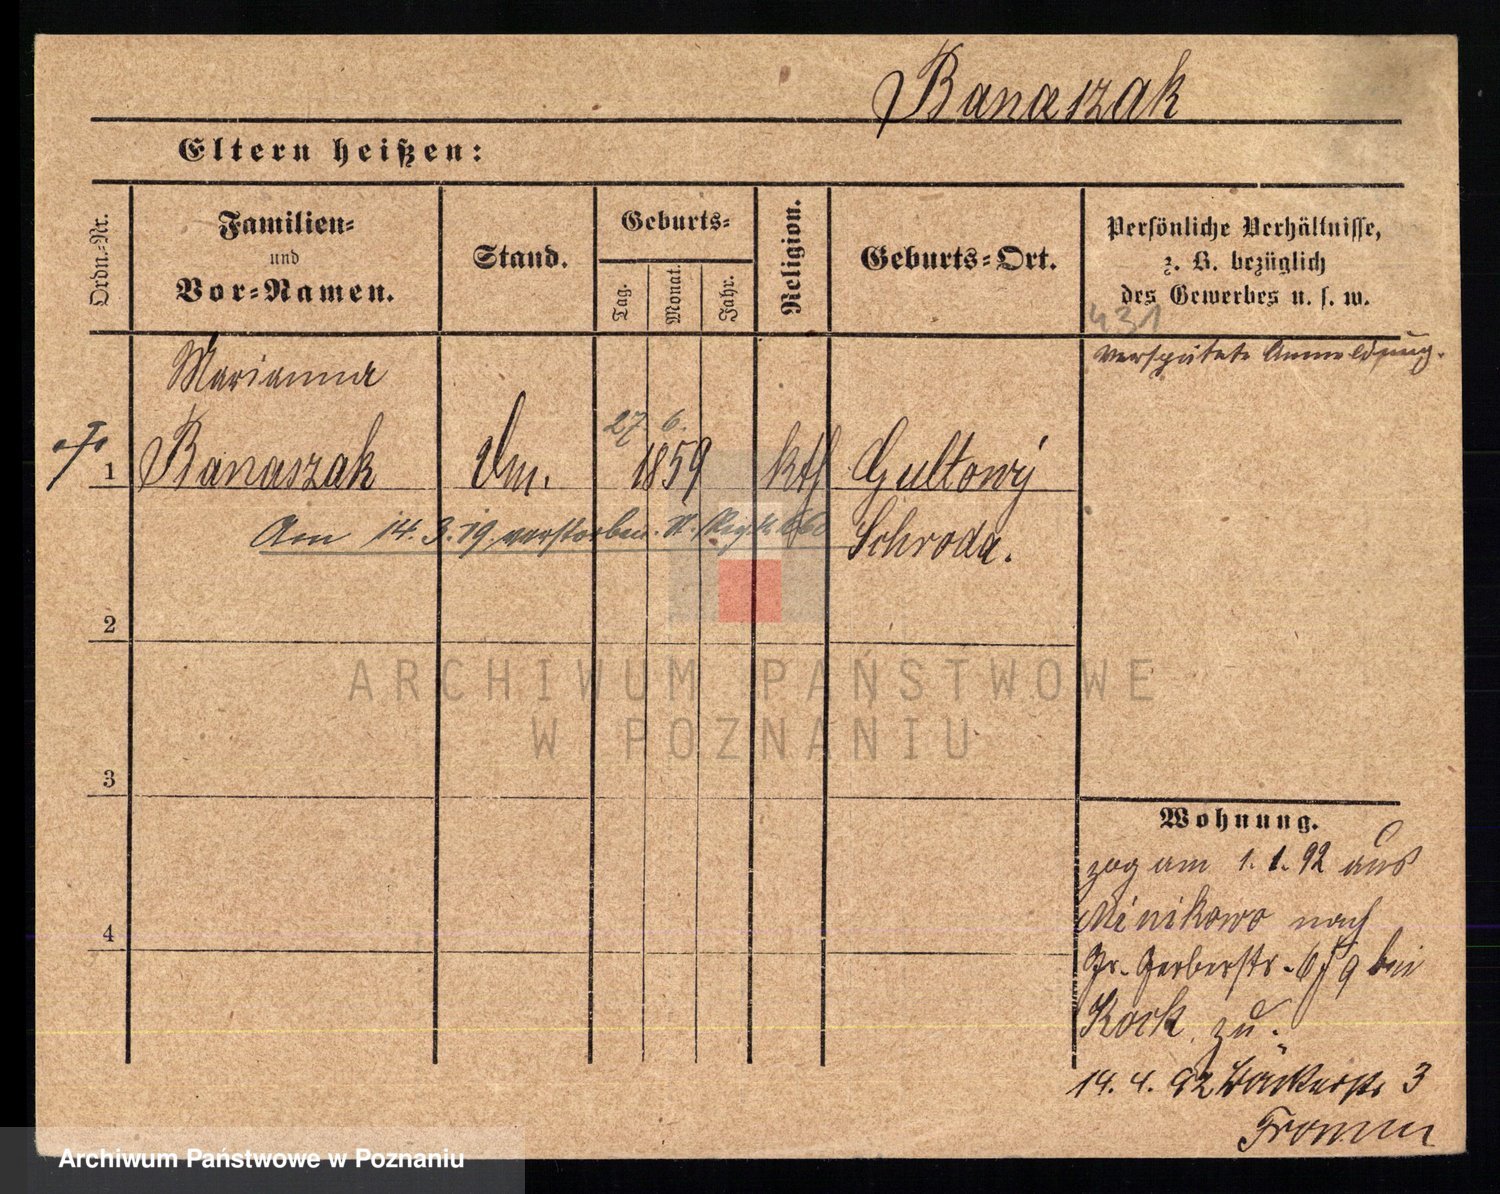 Banaszak
Eltern heißen:
Ordn.-Nr.
Familien-
und
Vor-Namen.
Stand.
Geburts-
Tag.
Monat.
Jahr.
Religion.
Geburts-Ort.
Persönliche Verhältnisse,
z. B. bezüglich
des Gewerbes u. s. w.
431
verspätete Anmeldung.
Marianna
27 6.
1 Banaszak 1859 kth Gultowy
Am 14.3.19 verstorben.
Schroda.
2
3
4
Wohnung.
zog am 1.1.92 aus
Minikowo nach
Gr. Gerberstr. 9 bei
Kock zu.
14.4.92 Bäckerstr 3
Fromm
ARCHIWUM PAŃSTWOWE
W POZNANIU
Archiwum Państwowe w Poznaniu